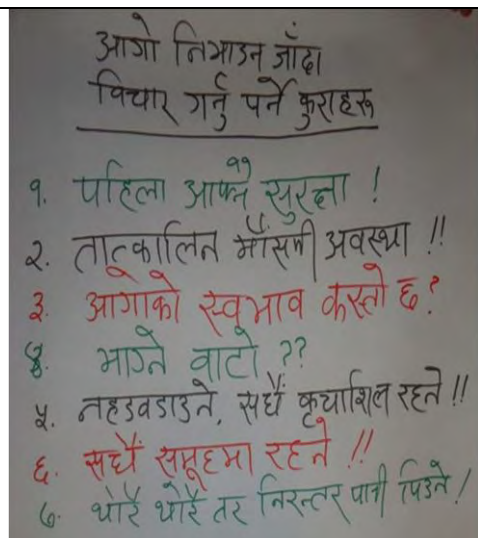 आगो निभाउन जाँदा
विचार गर्नु पर्ने कुराहरू
१. पहिला आफ्नै सुरक्षा !
२. तात्कालिन मौसमी अवस्था !!
३. आगोको स्वभाव कस्तो छ ?
४. भाग्ने वाटो ??
५. नहडवडाउने, सधैँ कृयाशिल रहने !!
६. सधैँ समूहमा रहने !!
७. थोरै थोरै तर निरन्तर पानी पिउने !